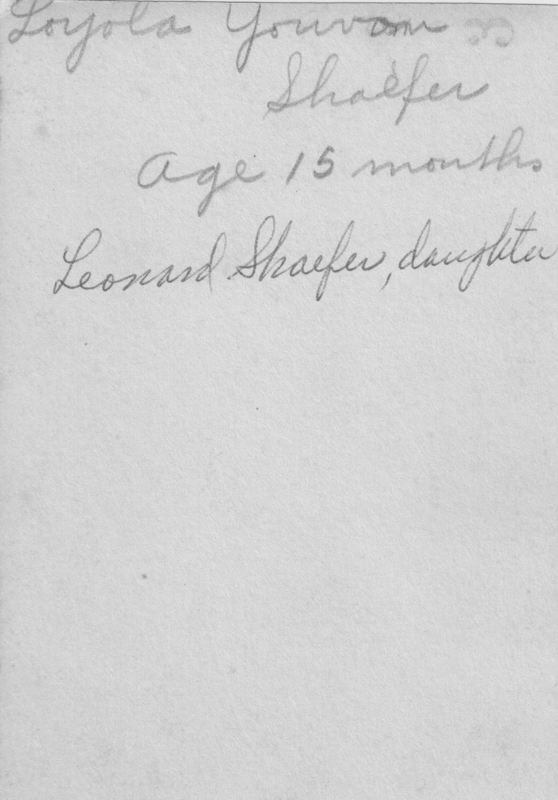 Loyola Youvam
Shaefer
age 15 months
Leonard Shaefer, daughter